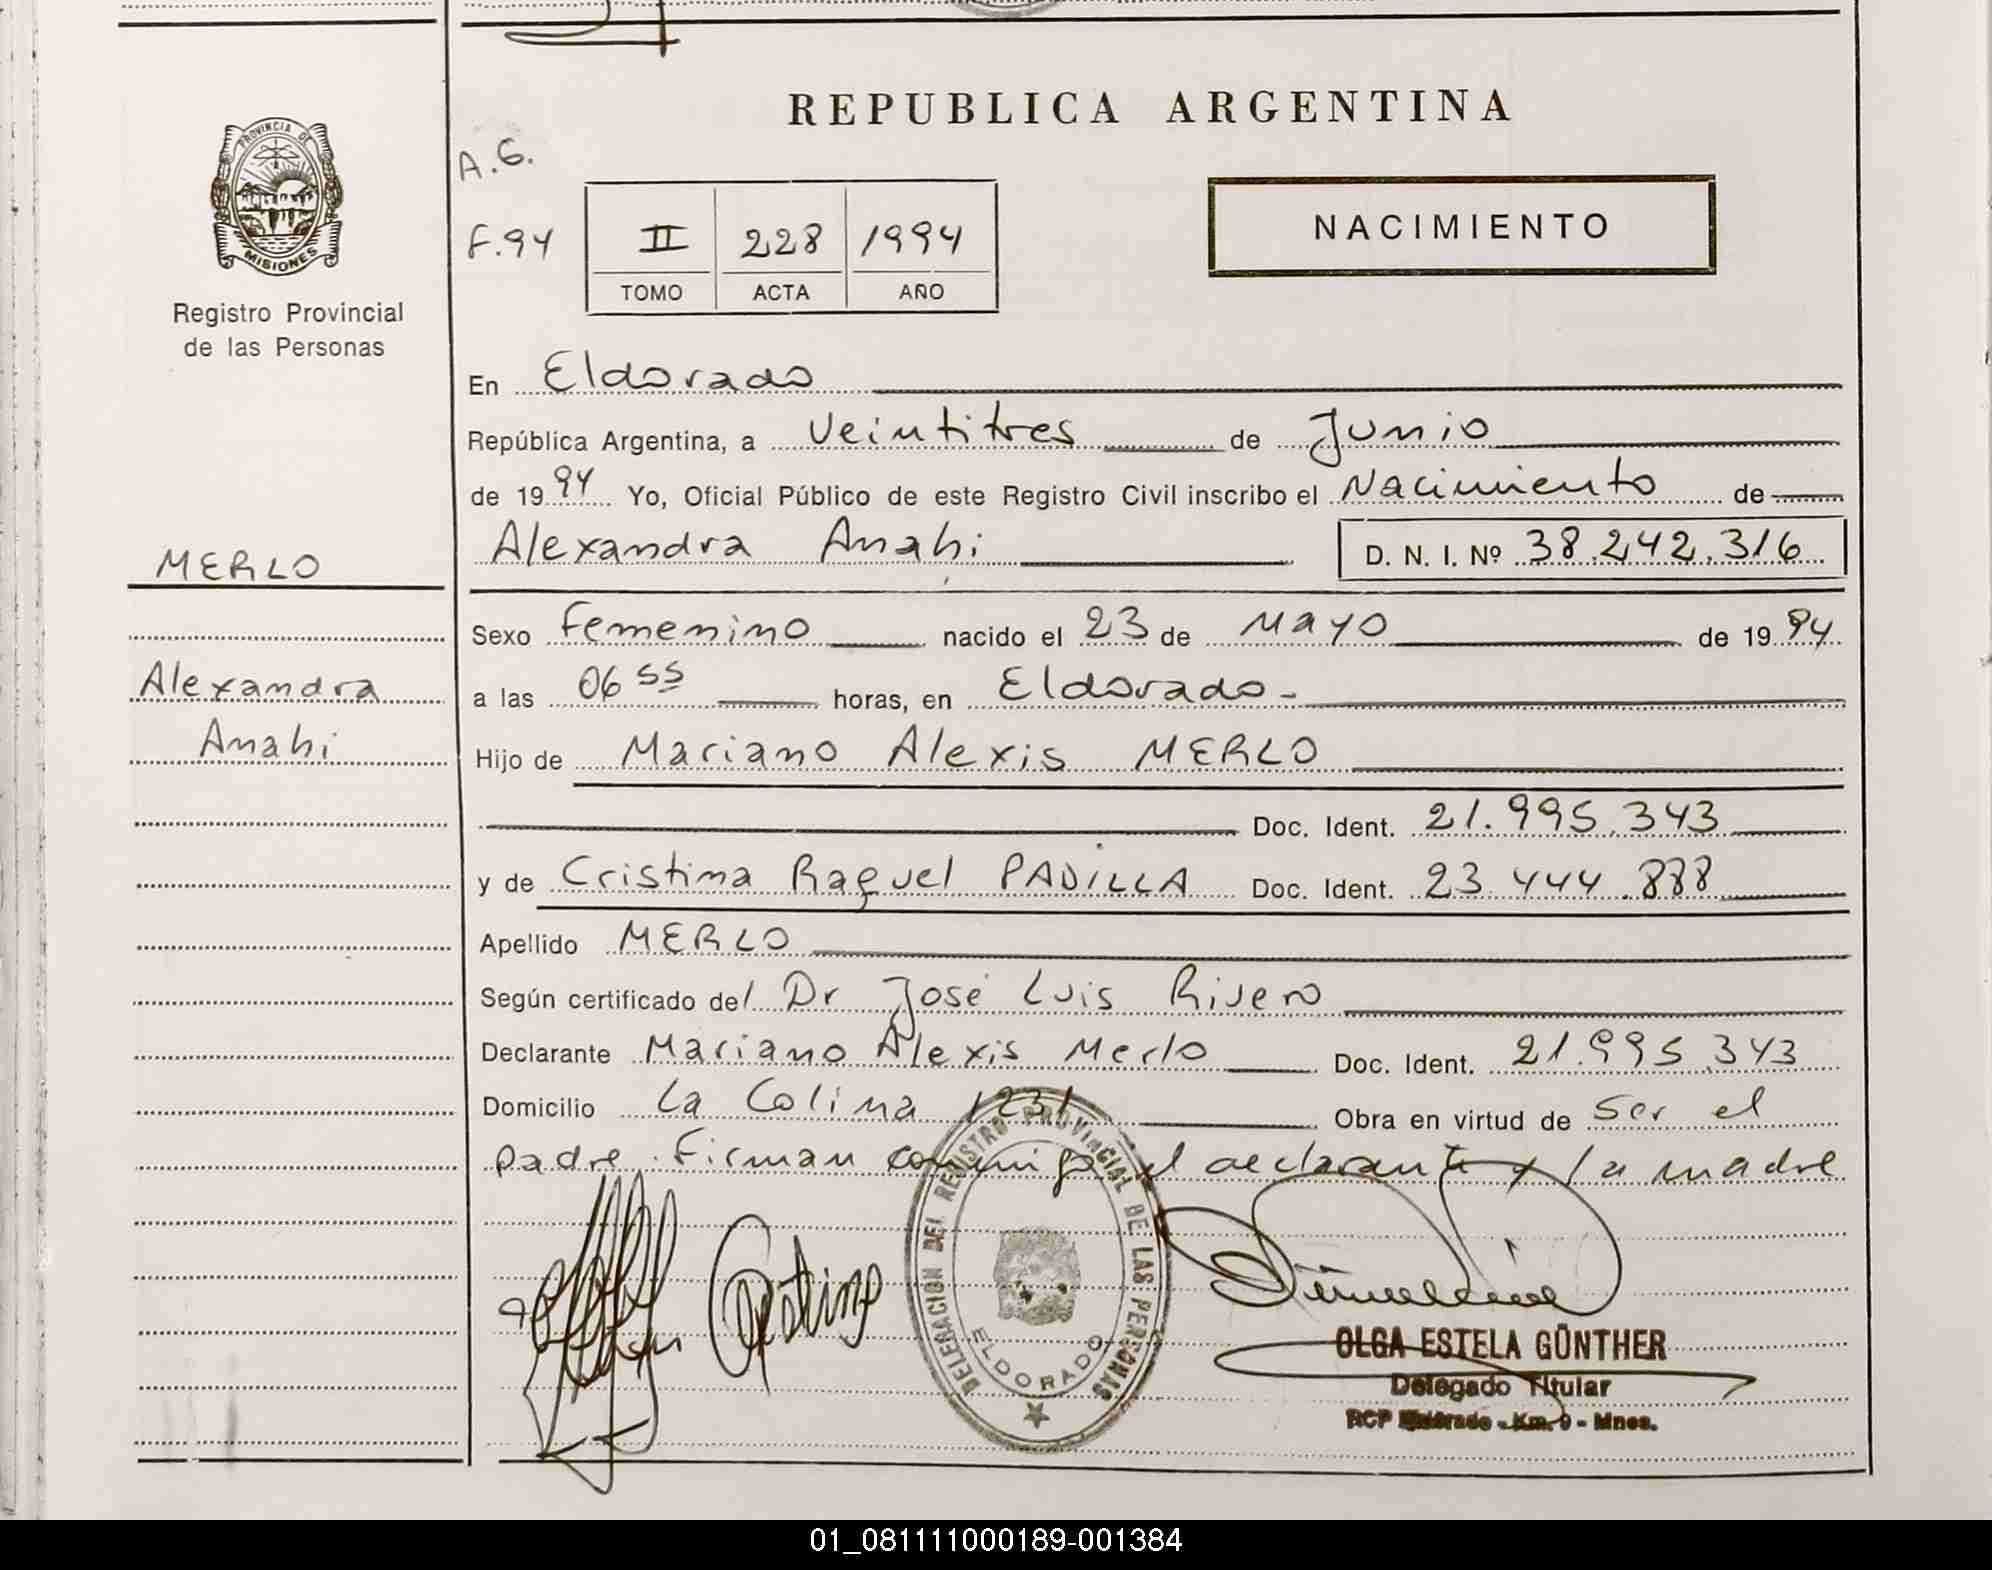 REPUBLICA ARGENTINA
PROVINCIA DE
MISIONES
Registro Provincial
de las Personas
A.G.
F.94
II 228 1994
TOMO ACTA AÑO
NACIMIENTO
En Eldorado
República Argentina, a Veintitres de Junio
de 1994 Yo, Oficial Público de este Registro Civil inscribo el Nacimiento de
Alexandra Anahi D. N. I. Nº 38.242.316
MERLO
Alexandra
Anahi
Sexo Femenino nacido el 23 de Mayo de 1994
a las 06 55 horas, en Eldorado-
Hijo de Mariano Alexis MERLO
Doc. Ident. 21.995.343
y de Cristina Raquel PADILLA Doc. Ident. 23.444.888
Apellido MERLO
Según certificado del Dr José Luis Rivero
Declarante Mariano Alexis Merlo Doc. Ident. 21.995.343
Domicilio La Colina 1231 Obra en virtud de ser el
padre. Firman conmigo el declarante y la madre
DELEGACION DEL REGISTRO PROVINCIAL DE LAS PERSONAS
ELDORADO
OLGA ESTELA GÜNTHER
Delegado Titular
RCP Eldorado - Km. 9 - Mnes.
01_081111000189-001384